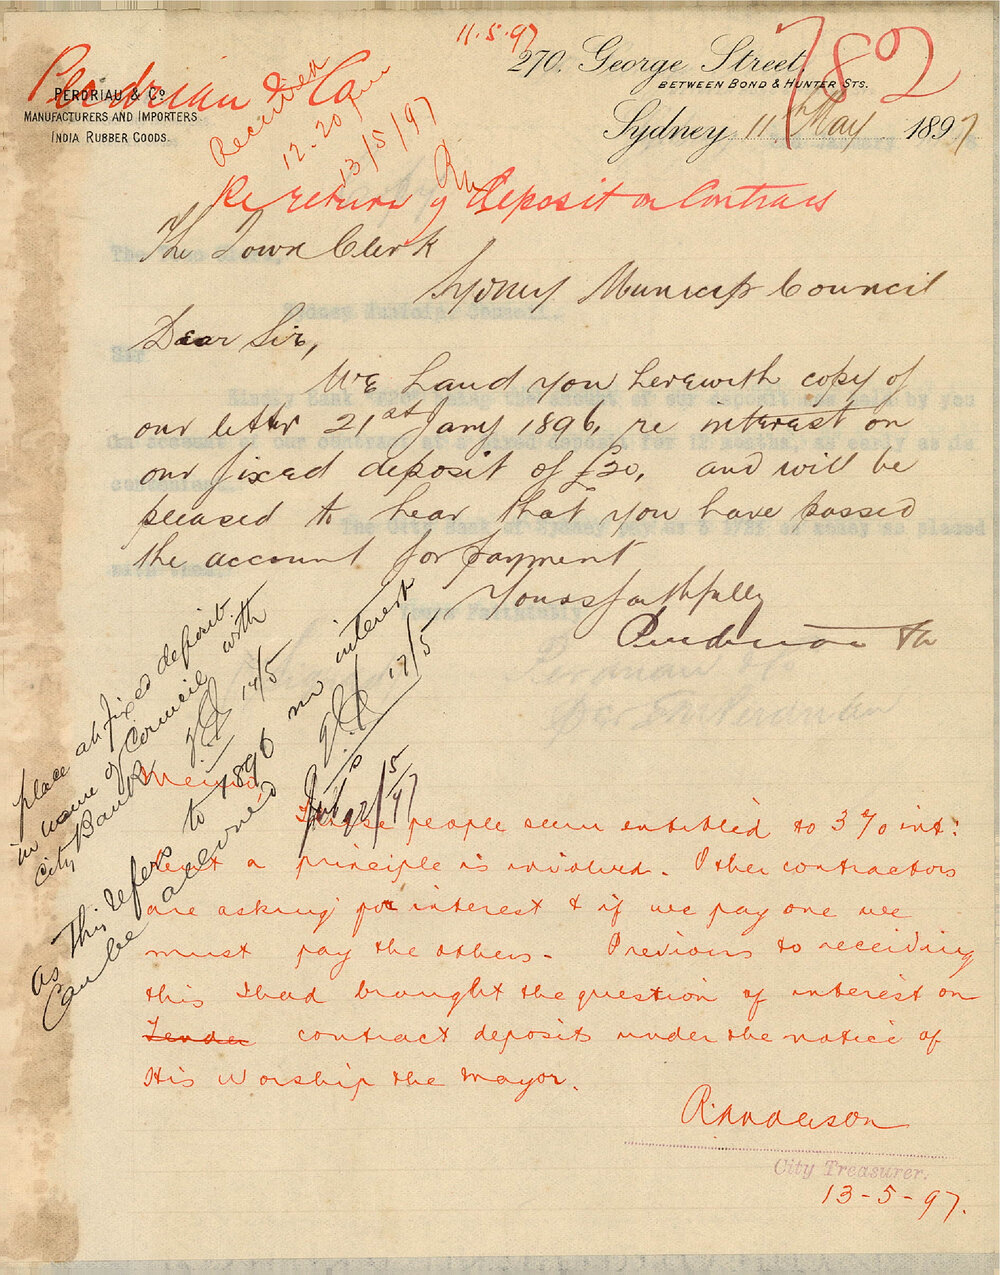 11.5.97
782
Perdriau & Co
PERDRIAU & Co
MANUFACTURERS AND IMPORTERS
INDIA RUBBER GOODS.
270. George Street
BETWEEN BOND & HUNTER STS.
Sydney, 11 May 1897
Received
12.20 pm
13/5/97
Re return of Deposit on Contracts
The Town Clerk
Sydney Municip Council
Dear Sir,
We hand you herewith copy of
our letter 21st Jany 1896, re interest on
our fixed deposit of £20, and will be
pleased to hear that you have passed
the account for payment
Yours faithfully
Perdriau & Co
place at fixed deposit
in name of Council with
City Bank
14/5
as this refers to 1896 no interest
can be accrued
17/5
Memo
These people seem entitled to 3% int:
but a principle is involved. Other contractors
are asking for interest & if we pay one we
must pay the others. Previous to receiving
this I had brought the question of interest on
Tender contract deposits under the notice of
His Worship the Mayor.
R. Anderson
City Treasurer.
13-5-97.